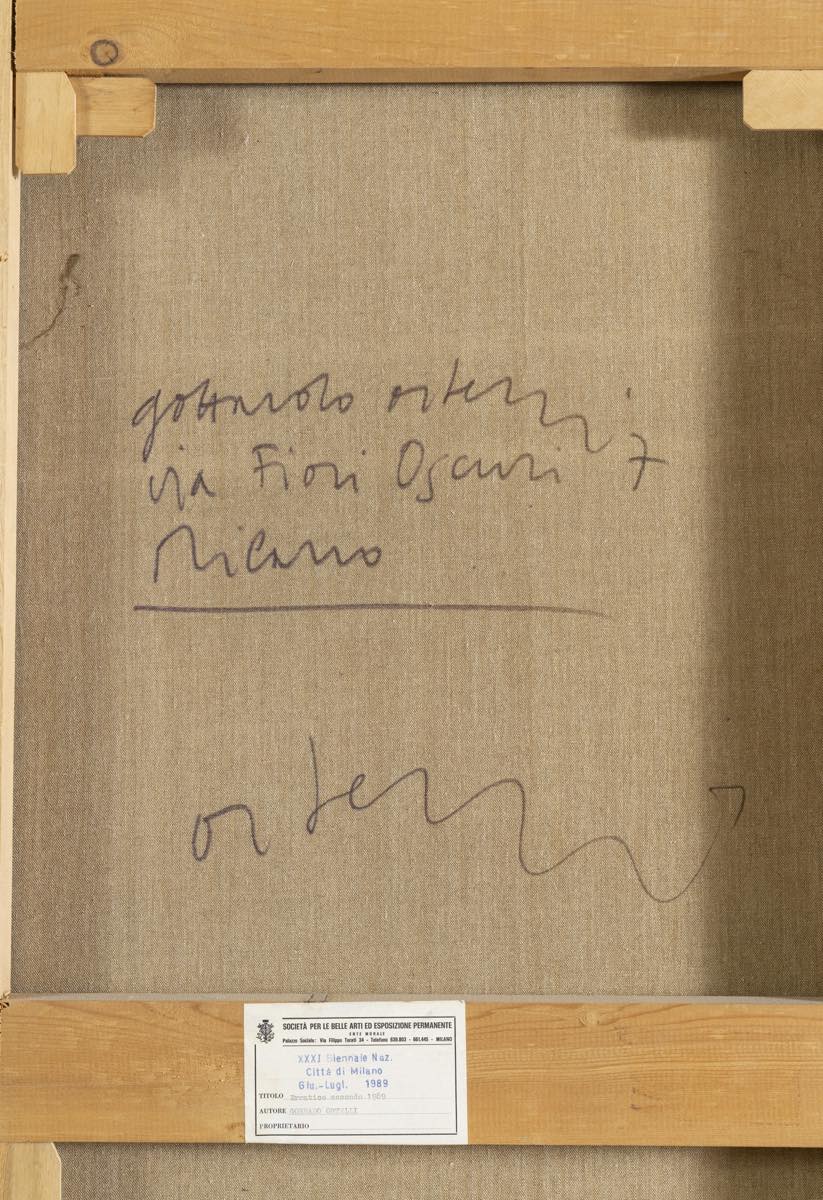 gottardo ortelli
via Fiori Oscuri 7
Milano
ortelli
SOCIETÀ PER LE BELLE ARTI ED ESPOSIZIONE PERMANENTE
ENTE MORALE
Palazzo Sociale: Via Filippo Turati 34 - Telefono 639.803 - 661.445 - MILANO
XXXI Biennale Naz.
Città di Milano
Giu.-Lugl. 1989
TITOLO secondo 1989
AUTORE ORTELLI
PROPRIETARIO